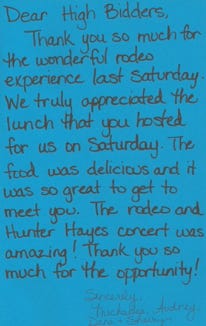 Dear High Bidders,
Thank you so much for
the wonderful rodeo
experience last Saturday.
We truly appreciated the
lunch that you hosted
for us on Saturday. The
food was delicious and it
was so great to get to
meet you. The rodeo and
Hunter Hayes concert was
amazing! Thank you so
much for the opportunity!
Sincerely,
Audrey,